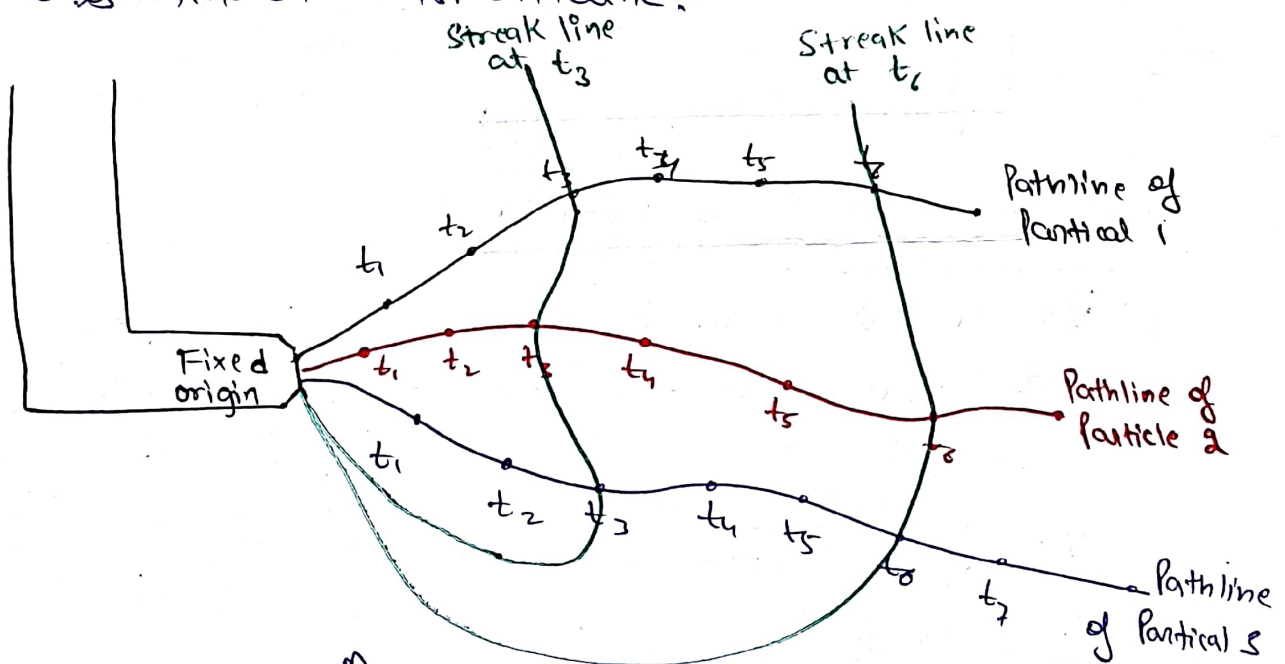 Streak line
at t₃
Streak line
at t₆
t₁
t₂
t₃
t₄
t₅
t₆
Pathline of
Partical 1
Fixed
origin
t₁
t₂
t₃
t₄
t₅
t₆
Pathline of
Particle 2
t₁
t₂
t₃
t₄
t₅
t₆
t₇
Pathline
of Partical 3